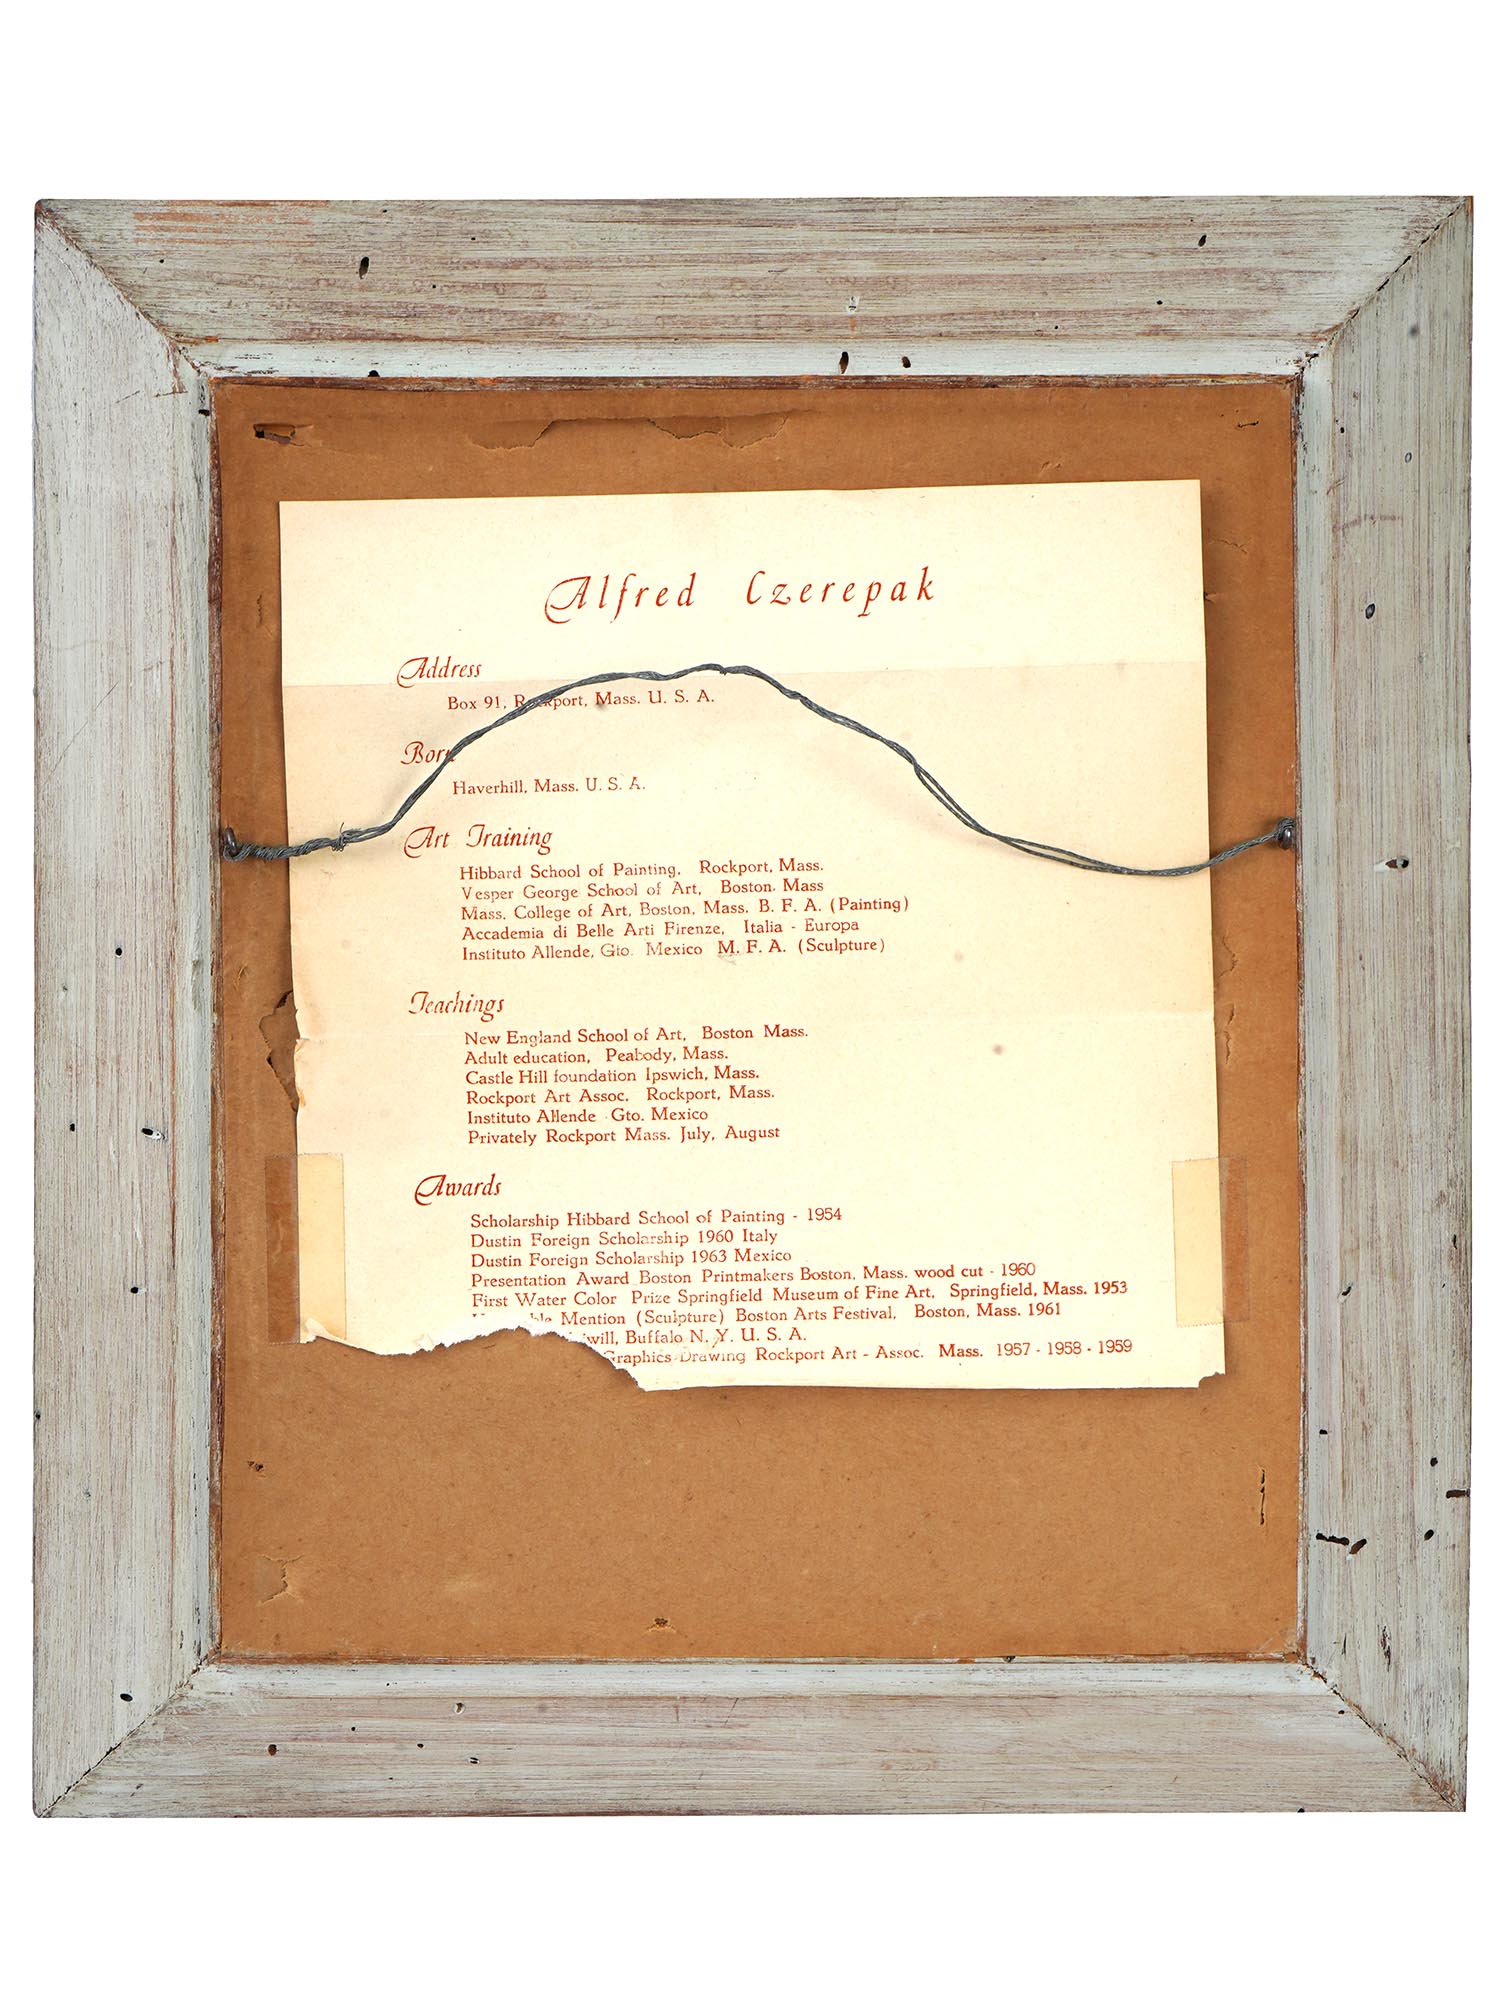 Alfred Czerepak
Address
Box 91, Rockport, Mass. U. S. A.
Born
Haverhill, Mass. U. S. A.
Art Training
Hibbard School of Painting, Rockport, Mass.
Vesper George School of Art, Boston. Mass
Mass. College of Art, Boston, Mass. B. F. A. (Painting)
Accademia di Belle Arti Firenze, Italia - Europa
Instituto Allende, Gto. Mexico M. F. A. (Sculpture)
Teachings
New England School of Art, Boston Mass.
Adult education, Peabody, Mass.
Castle Hill foundation Ipswich, Mass.
Rockport Art Assoc. Rockport, Mass.
Instituto Allende Gto. Mexico
Privately Rockport Mass. July, August
Awards
Scholarship Hibbard School of Painting - 1954
Dustin Foreign Scholarship 1960 Italy
Dustin Foreign Scholarship 1963 Mexico
Presentation Award Boston Printmakers Boston, Mass. wood cut - 1960
First Water Color Prize Springfield Museum of Fine Art, Springfield, Mass. 1953
Mention (Sculpture) Boston Arts Festival, Boston, Mass. 1961
Buffalo N. Y. U. S. A.
Graphics Drawing Rockport Art - Assoc. Mass. 1957 - 1958 - 1959